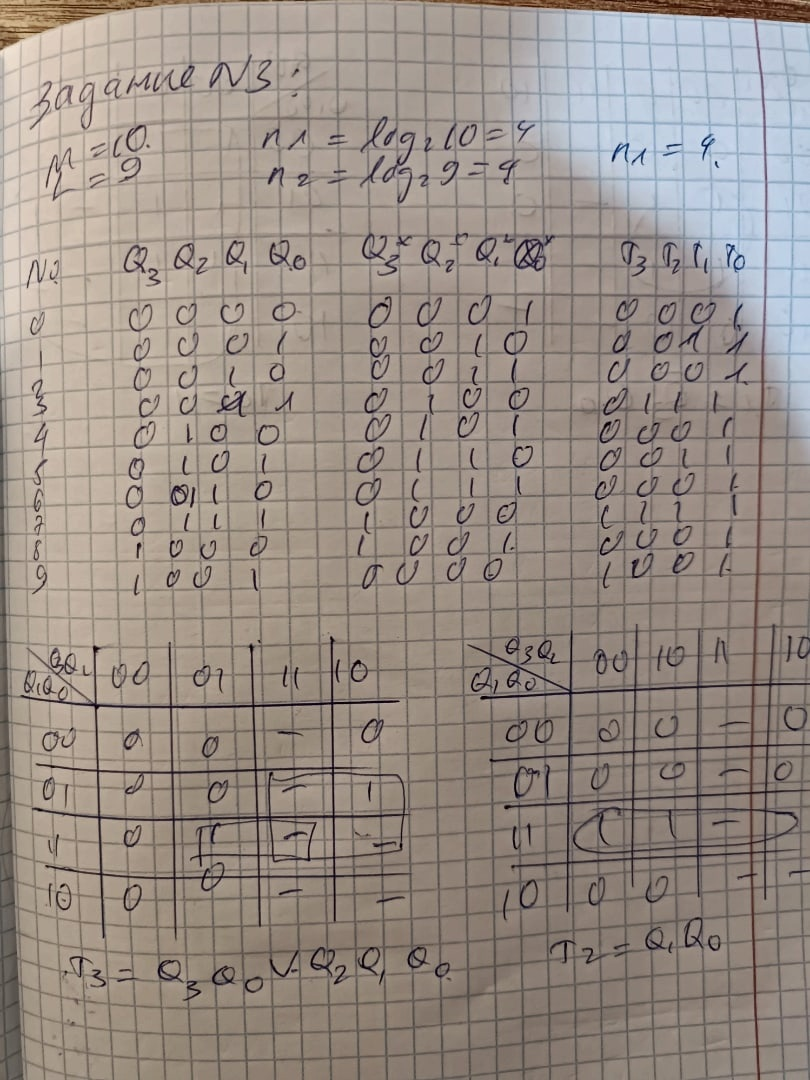 Задание N3:
M = 10. n1 = log2 10 = 4 n1 = 4.
L = 9 n2 = log2 9 = 4
No Q3 Q2 Q1 Q0 Q3* Q2* Q1* Q0* T3 T2 T1 T0
0 0 0 0 0 0 0 0 1 0 0 0 1
1 0 0 0 1 0 0 1 0 0 0 1 1
2 0 0 1 0 0 0 1 1 0 0 0 1
3 0 0 1 1 0 1 0 0 0 1 1 1
4 0 1 0 0 0 1 0 1 0 0 0 1
5 0 1 0 1 0 1 1 0 0 0 1 1
6 0 1 1 0 0 1 1 1 0 0 0 1
7 0 1 1 1 1 0 0 0 1 1 1 1
8 1 0 0 0 1 0 0 1 0 0 0 1
9 1 0 0 1 0 0 0 0 1 0 0 1
Q1Q0 00 01 11 10 Q3Q2 Q1Q0 00 10 11 10
00 0 0 – 0 00 0 0 – 0
01 0 0 – 1 01 0 0 – 0
11 0 1 – – 11 1 1 –
10 0 0 – – 10 0 0 – –
T3 = Q3 Q0 V Q2 Q1 Q0 T2 = Q1 Q0